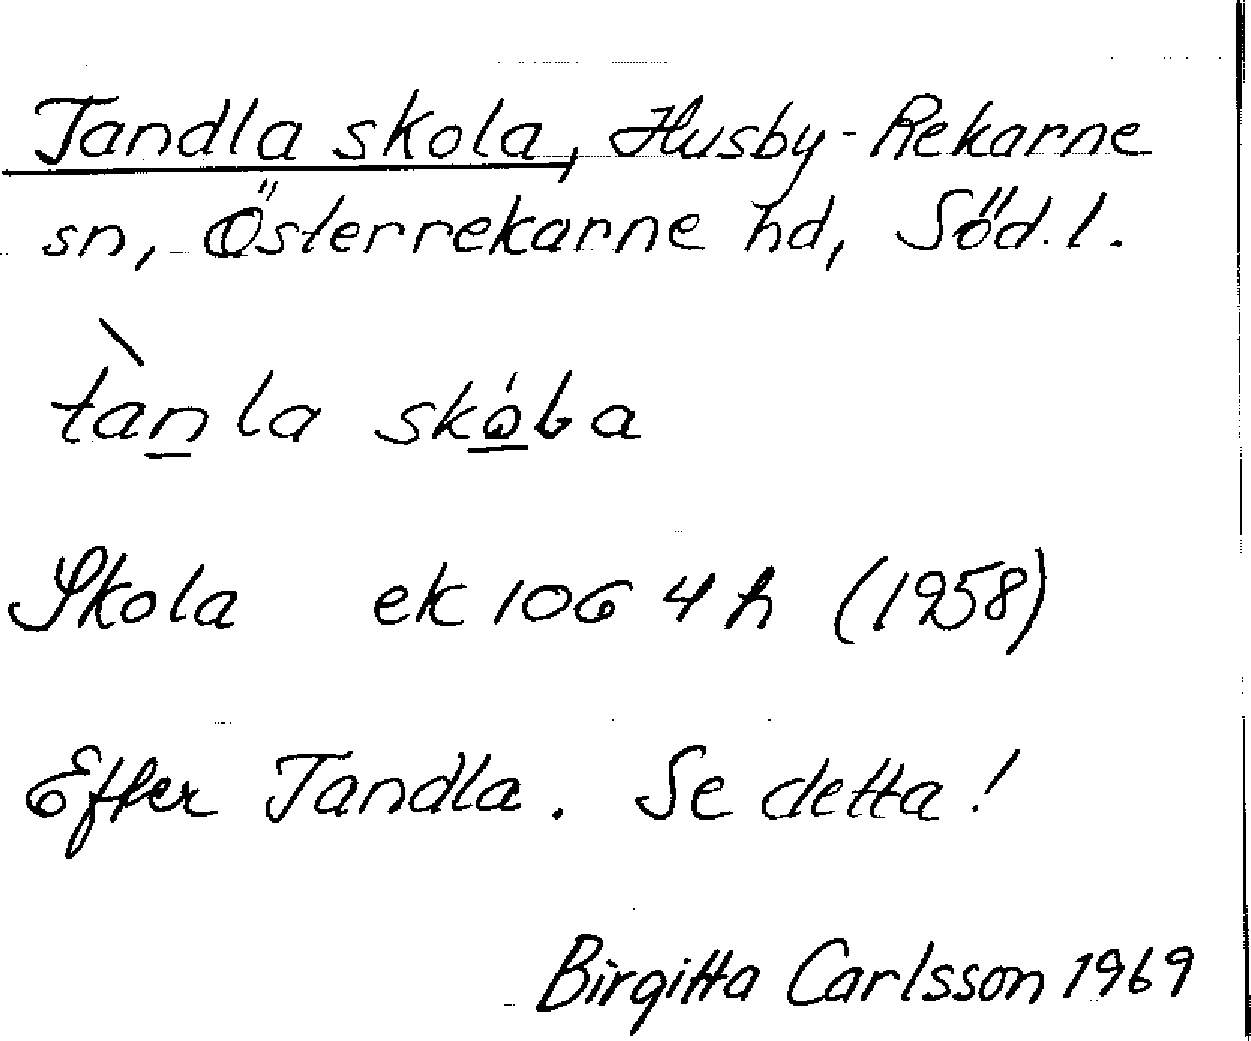 Tandla skola, Husby-Rekarne
sn, Österrekarne hd, Söd.l.
tàn̲la skó̲ɫa
Skola ek 106 4 h (1958)
Efter Tandla. Se detta!
Birgitta Carlsson 1969